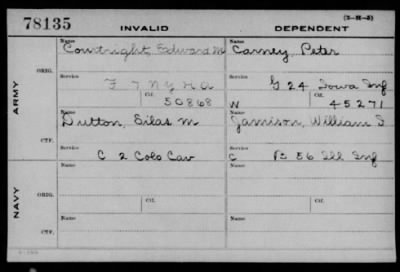 (3-H-5)
78135 INVALID DEPENDENT
Name Name
Courtright, Edward M Carney, Peter
ORIG.
Service Service
F 7 N Y H A G 24 Iowa Inf
Ctf. Ctf.
50868 W 45271
ARMY
Name Name
Dutton, Silas M Jamison, William S
CTF.
Service Service
C 2 Colo Cav C B 56 Ill Inf
Name Name
NAVY
ORIG. Ctf. Ctf.
Name Name
CTF.